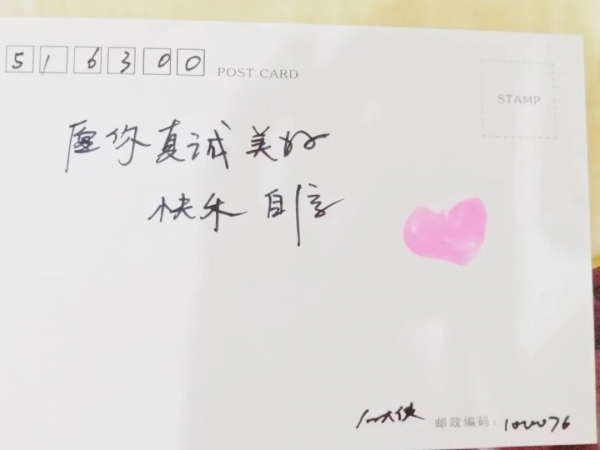 516300 POST CARD
STAMP
愿你真诚美好
快乐自信
大侠 邮政编码: 100076